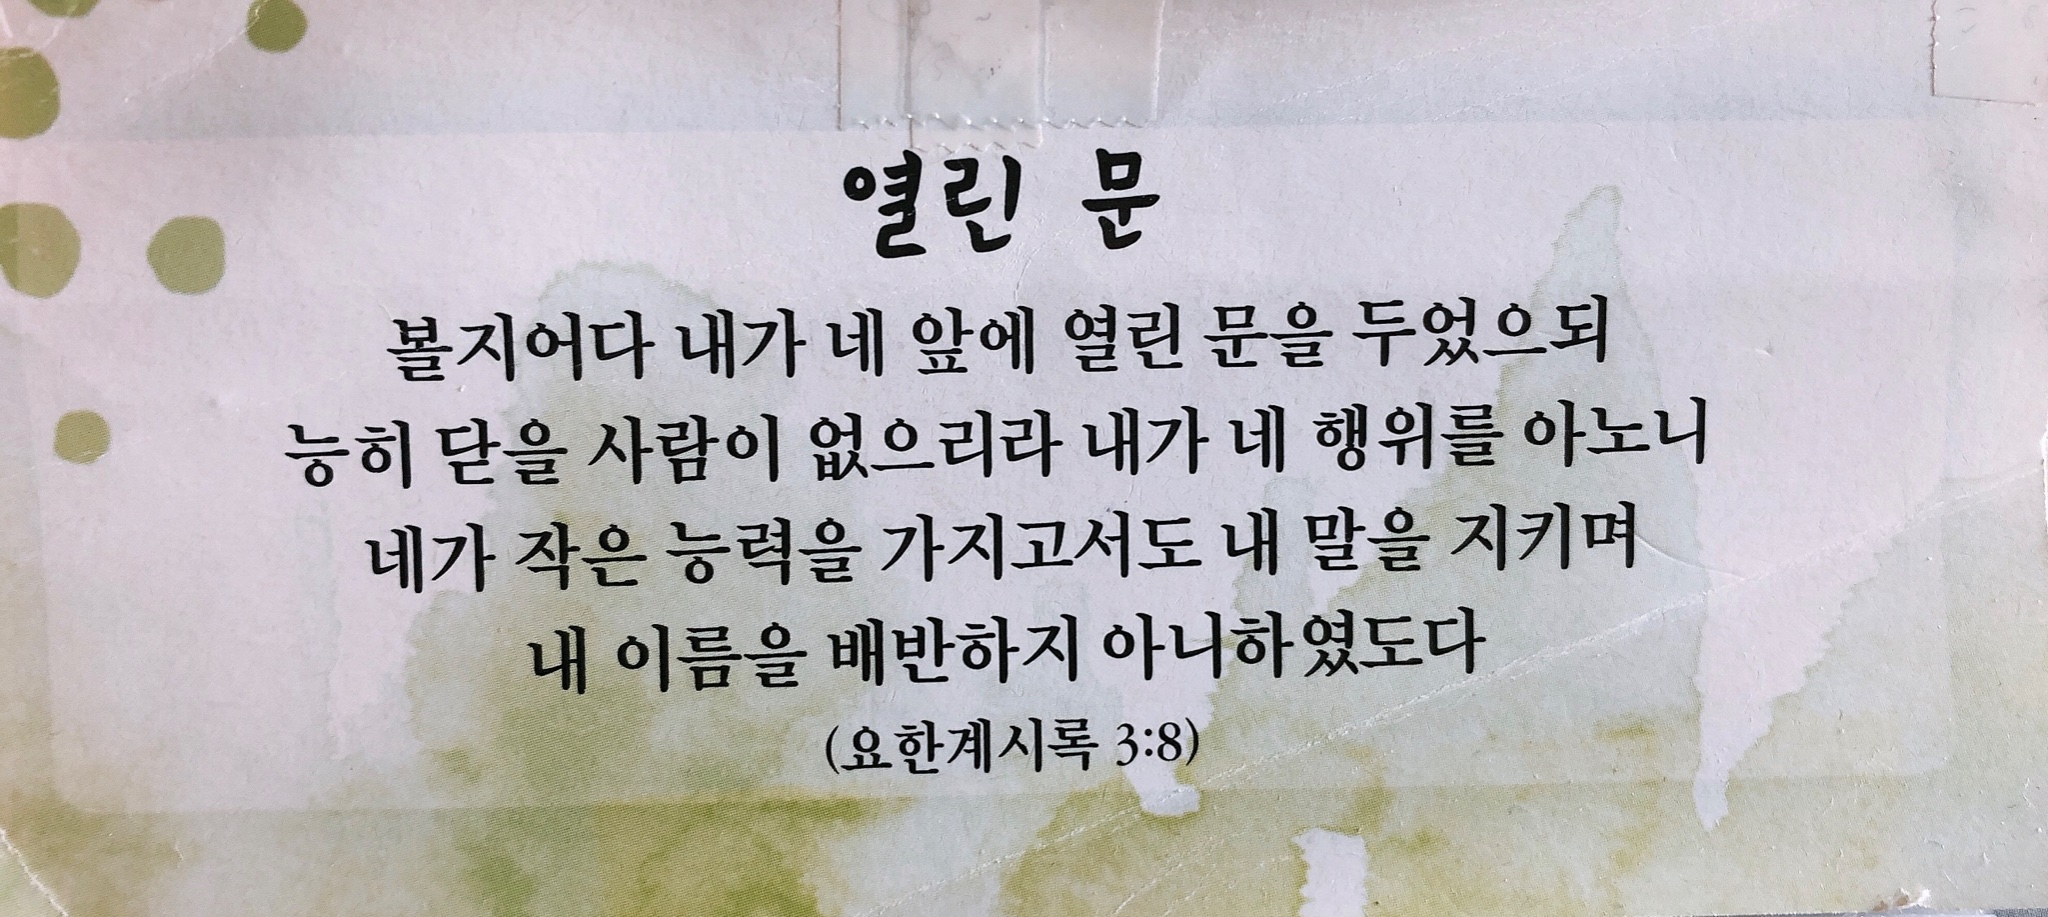 열린 문
볼지어다 내가 네 앞에 열린 문을 두었으되
능히 닫을 사람이 없으리라 내가 네 행위를 아노니
네가 작은 능력을 가지고서도 내 말을 지키며
내 이름을 배반하지 아니하였도다
(요한계시록 3:8)